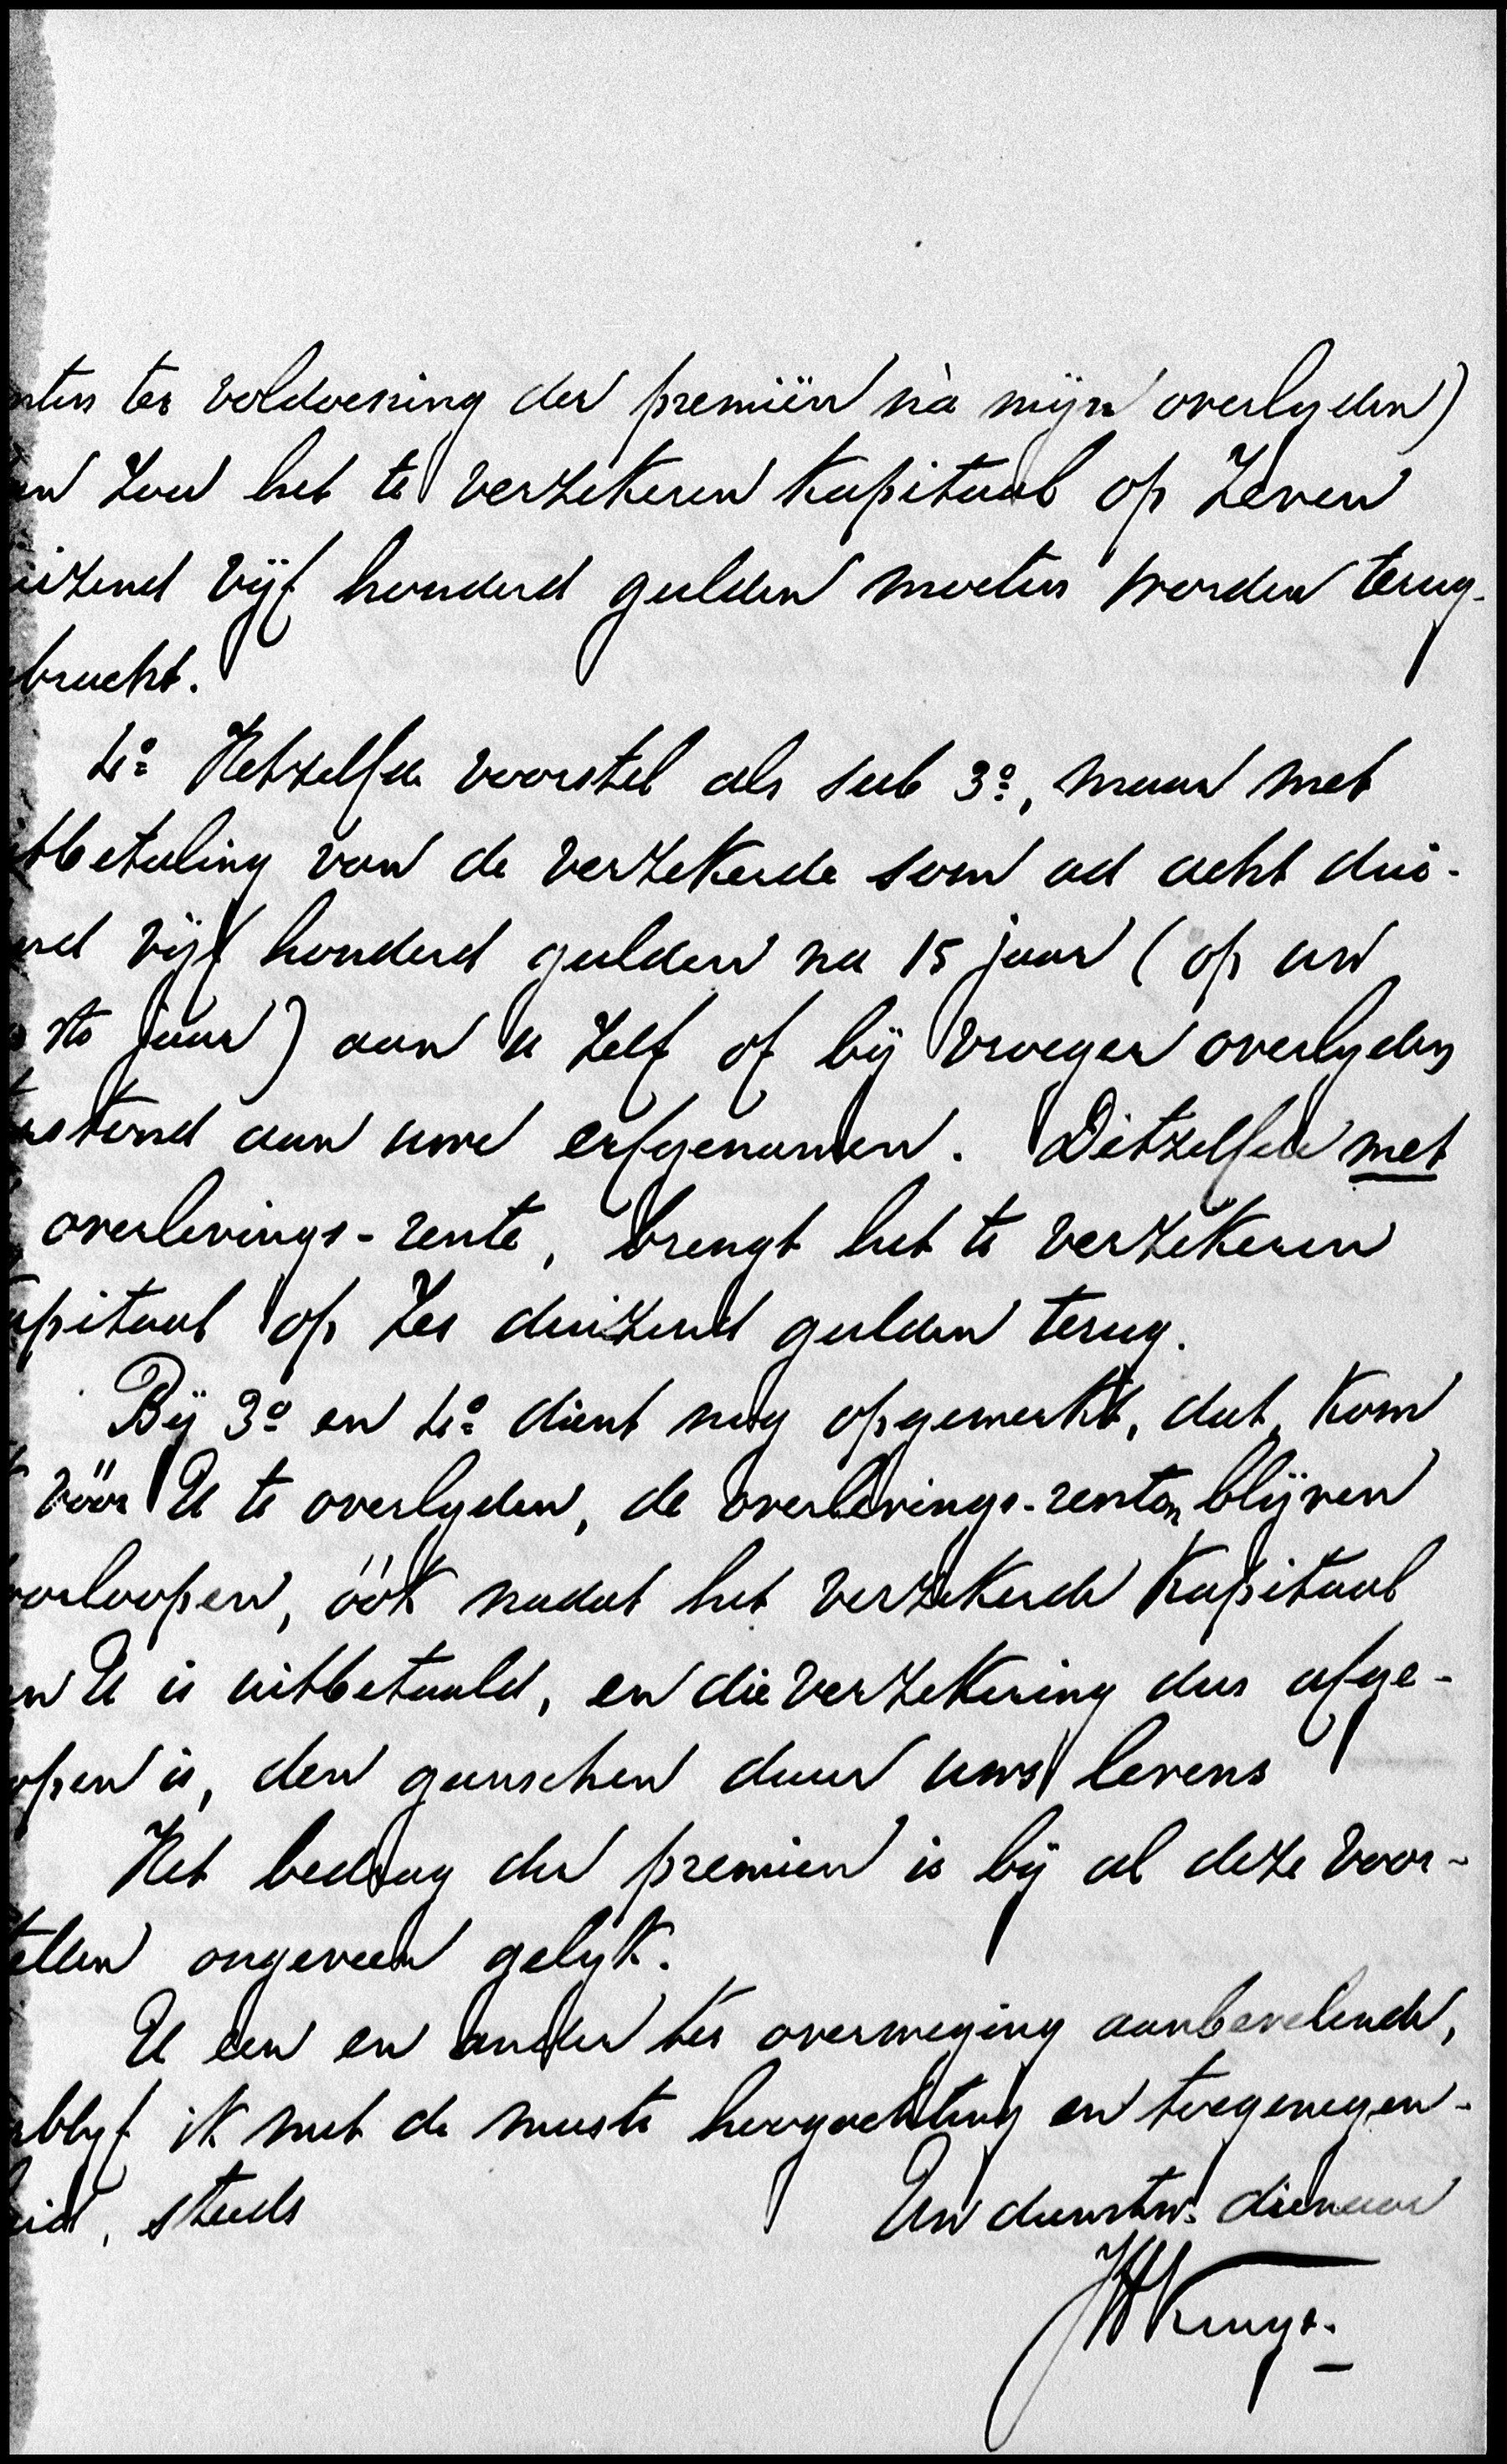 nten ter voldoening der premiën nà mijn overlyden)
en zou het te verzekeren kapitaal op zeven
uizend vijf honderd gulden moeten worden terug-
bracht.
4º Hetzelfde voorstel als sub 3º, maar met
itbetaling van de verzekerde som ad acht dui-
end vijf honderd gulden na 15 jaar (op uw
ste jaar) aan u zelf of bij vroeger overlyden
erstond aan uwe erfgenamen. Ditzelfde met
overlevings-rente, brengt het te verzekeren
apitaal op zes duizend gulden terug.
Bij 3º en 4º dient nog opgemerkt, dat, kom
vóór U te overlyden, de overlevings-renten blijven
oorloopen, óók nadat het verzekerde kapitaal
n U is uitbetaald, en die verzekering dus afge-
open is, den ganschen duur uws levens
Het bedrag der premien is bij al deze voor-
tellen ongeveer gelyk.
U een en ander ter overweging aanbevelende,
rblyf ik met de meeste hoogachting en toegenegen-
eid, steeds
Uw dienstw. dienaar